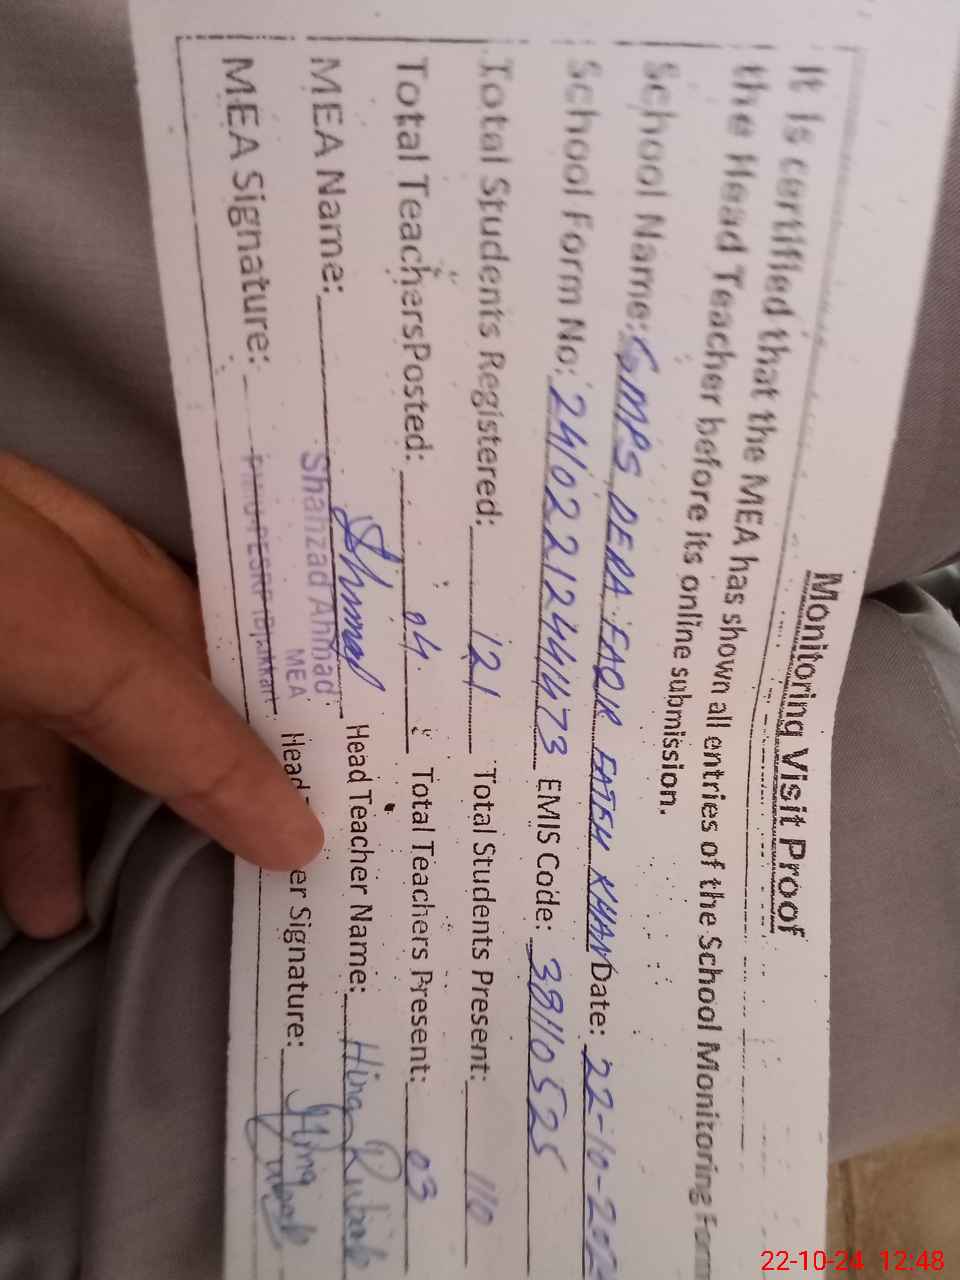 Monitoring Visit Proof
It is certified that the MEA has shown all entries of the School Monitoring Form
the Head Teacher before its online submission.
School Name: GMPS DERA FAQIR FATEH KHAN Date: 22-10-202
School Form No: 2410221244473 EMIS Code: 38110525
Total Students Registered: 121 Total Students Present: 110
Total TeachersPosted: 04 Total Teachers Present: 03
MEA Name: Shahzad Ahmad Head Teacher Name: Hina Rubab
MEA
MEA Signature: Head er Signature:
22-10-24 12:48